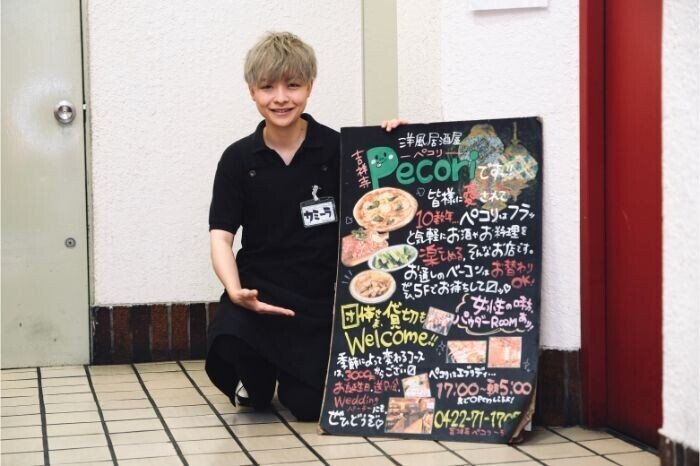 カミーラ
洋風居酒屋
ペコリ
吉祥寺
Pecoriです!!
皆様に愛されて
10数年…ペコリはフラッ
と気軽にお酒やお料理を
楽しめる、そんなお店です。
お通しのベーコンはお替わり
OK!
ぜひ5Fでお待ちして
団体さま、貸切も
Welcome!!
女性の味方、
パウダーRoomあり!
季節によって変わるコース
は、3000円から
お誕生日、送別会、
Wedding
パーティーにも、
ぜひどうぞ
ペコリのコンセプトは…
17:00〜朝5:00
までOpen
0422-71-17
吉祥寺ペコリ